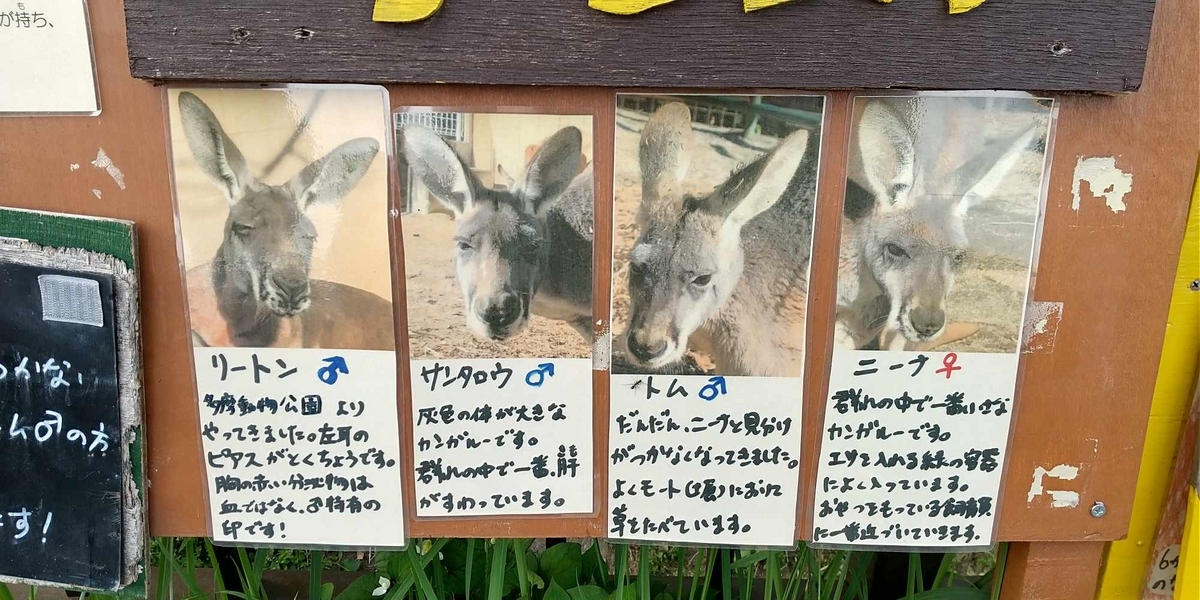 が持ち、
も
つかない
ム♂の方
です!
リートン ♂
多摩動物公園 より
やってきました。左耳の
ピアスがとくちょうです。
胸の赤い分泌物は
血ではなく、♂特有の
印です!
サンタロウ ♂
灰色の体が大きな
カンガルーです。
群れの中で一番、肝
きも
がすわっています。
トム ♂
だんだん、ニーナと見分け
がつかなくなってきました。
よくモート(堀)におりて
草をたべています。
ニーナ ♀
群れの中で一番小さな
カンガルーです。
エサを入れる緑の容器
によく入っています。
おやつをもっている飼育員
に一番近づいていきます。